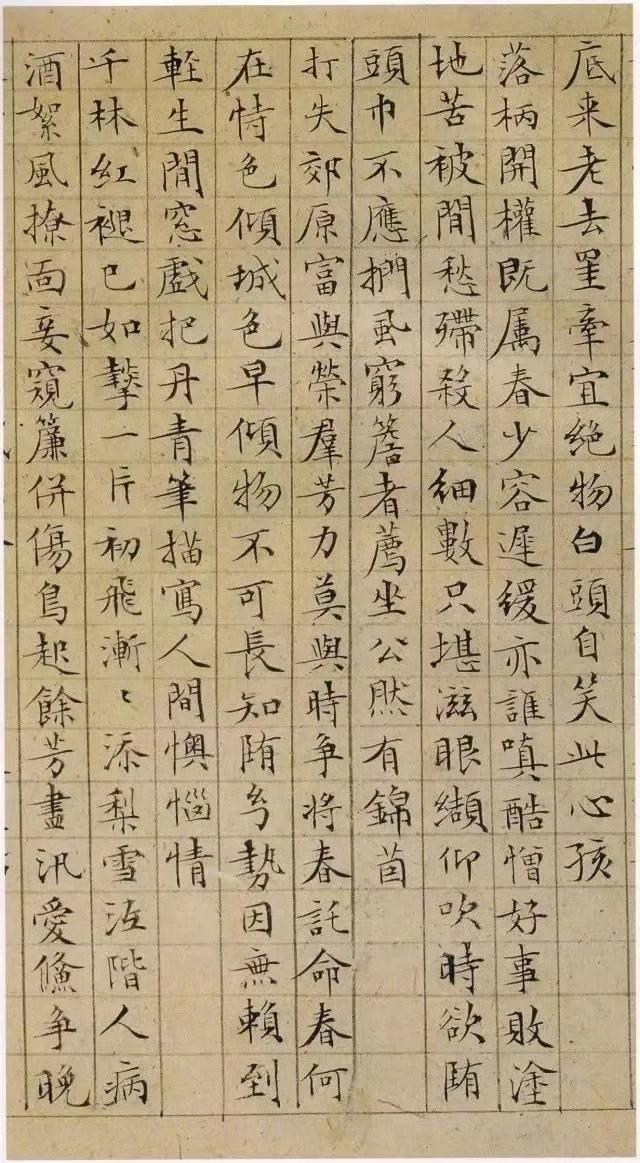 底来老去罣牽宜絶物白頭自笑此心孩
落柄開權既属春少容遲緩亦誰嗔酷憎好事敗塗
地苦被閒愁殢殺人細數只堪滋眼纈仰吹時欲堕
頭巾不應捫風窮簷者薦坐公然有錦茵
打失郊原富與榮羣芳力莫與時争將春託命春何
在恃色傾城色早傾物不可長知堕兮勢因無賴到
軽生閒窓戲把丹青筆描寫人間懊惱情
千林紅褪已如一片初飛漸〻添梨雪沍階人病
酒絮風撩面妾窺簾併傷鳥起餘芳盡汎愛争晚